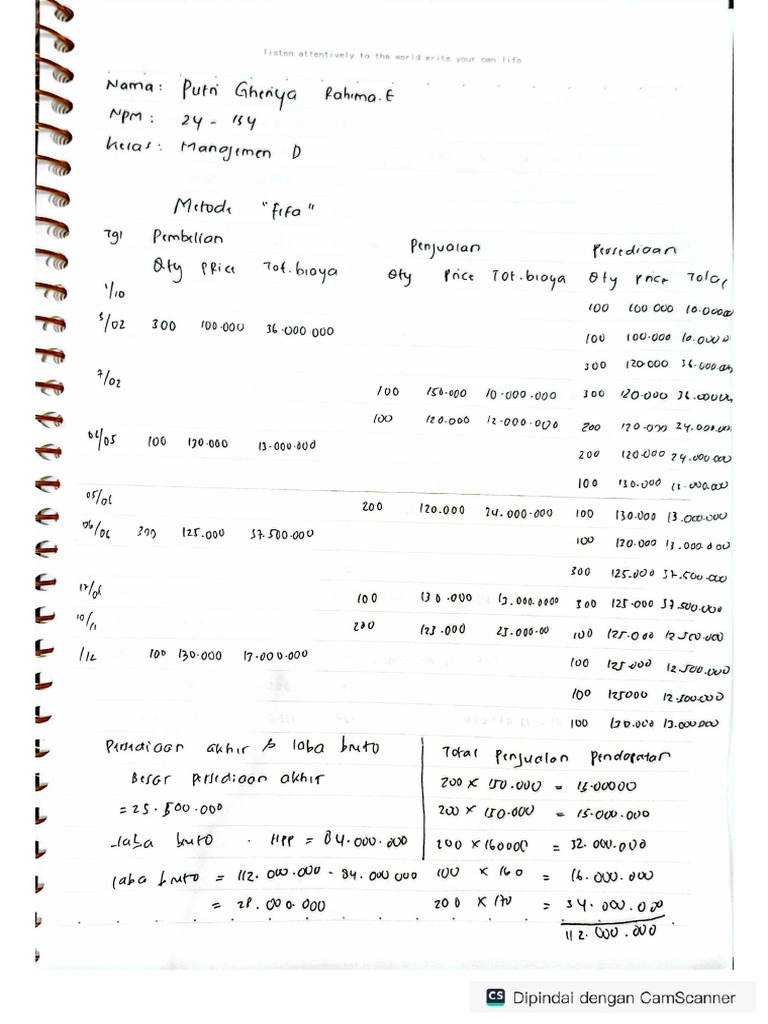 listen attentively to the world write your own life
Nama: Putri Gheriya Rahima.E
NPM: 24-154
Kelas: Manajemen D
Metode "fifo"
Tgl Pembelian Penjualan Persediaan
Qty PRice Tot.biaya Qty Price Tot.biaya Qty price Total
1/10 100 100 000 10.00000
5/02 300 100.000 36.000.000 100 100.000 10.0000
300 120000 36.000.00
7/02 100 150.000 10.000.000 300 120.000 36.00000
100 120.000 12.000.000 200 120.000 24.000.00
04/05 100 130.000 13.000.000 200 120.000 24.000.000
100 130.000 13.000.00
05/06 200 120.000 24.000.000 100 130.000 13.000.000
06/06 300 125.000 37.500.000 100 130.000 13.000.000
300 125.000 37.500.000
17/06 100 130.000 13.000.0000 300 125.000 37.500.000
10/11 200 125.000 25.000.00 100 125.000 12.500.000
/12 100 130.000 13.000.000 100 125.000 12.500.000
100 125000 12.500.000
100 130.000 13.000000
Persediaan akhir & laba bruto Total Penjualan Pendapatan
Besar persediaan akhir 200 x 150.000 = 15.00000
= 25.500.000 200 x 150.000 = 15.000.000
laba bruto . HPP = 84.000.000 200 x 160000 = 32.000.000
laba bruto = 112.000.000 - 84.000 000 100 x 160 = 16.000.000
= 28.000.000 200 x 170 = 34.000.000
112.000.000
CS Dipindai dengan CamScanner